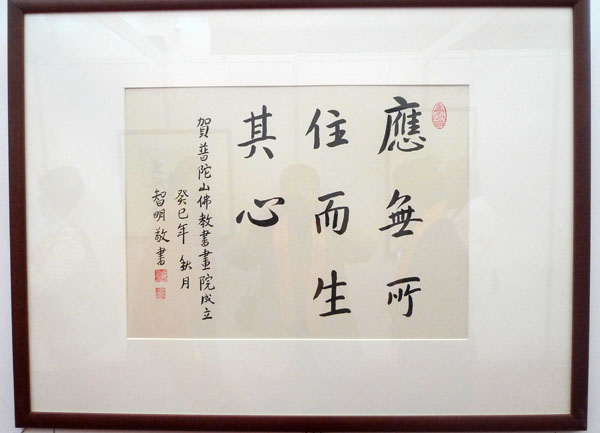 應無所
住而生
其心
賀普陀山佛教書畫院成立
癸巳年 秋月
智明敬書